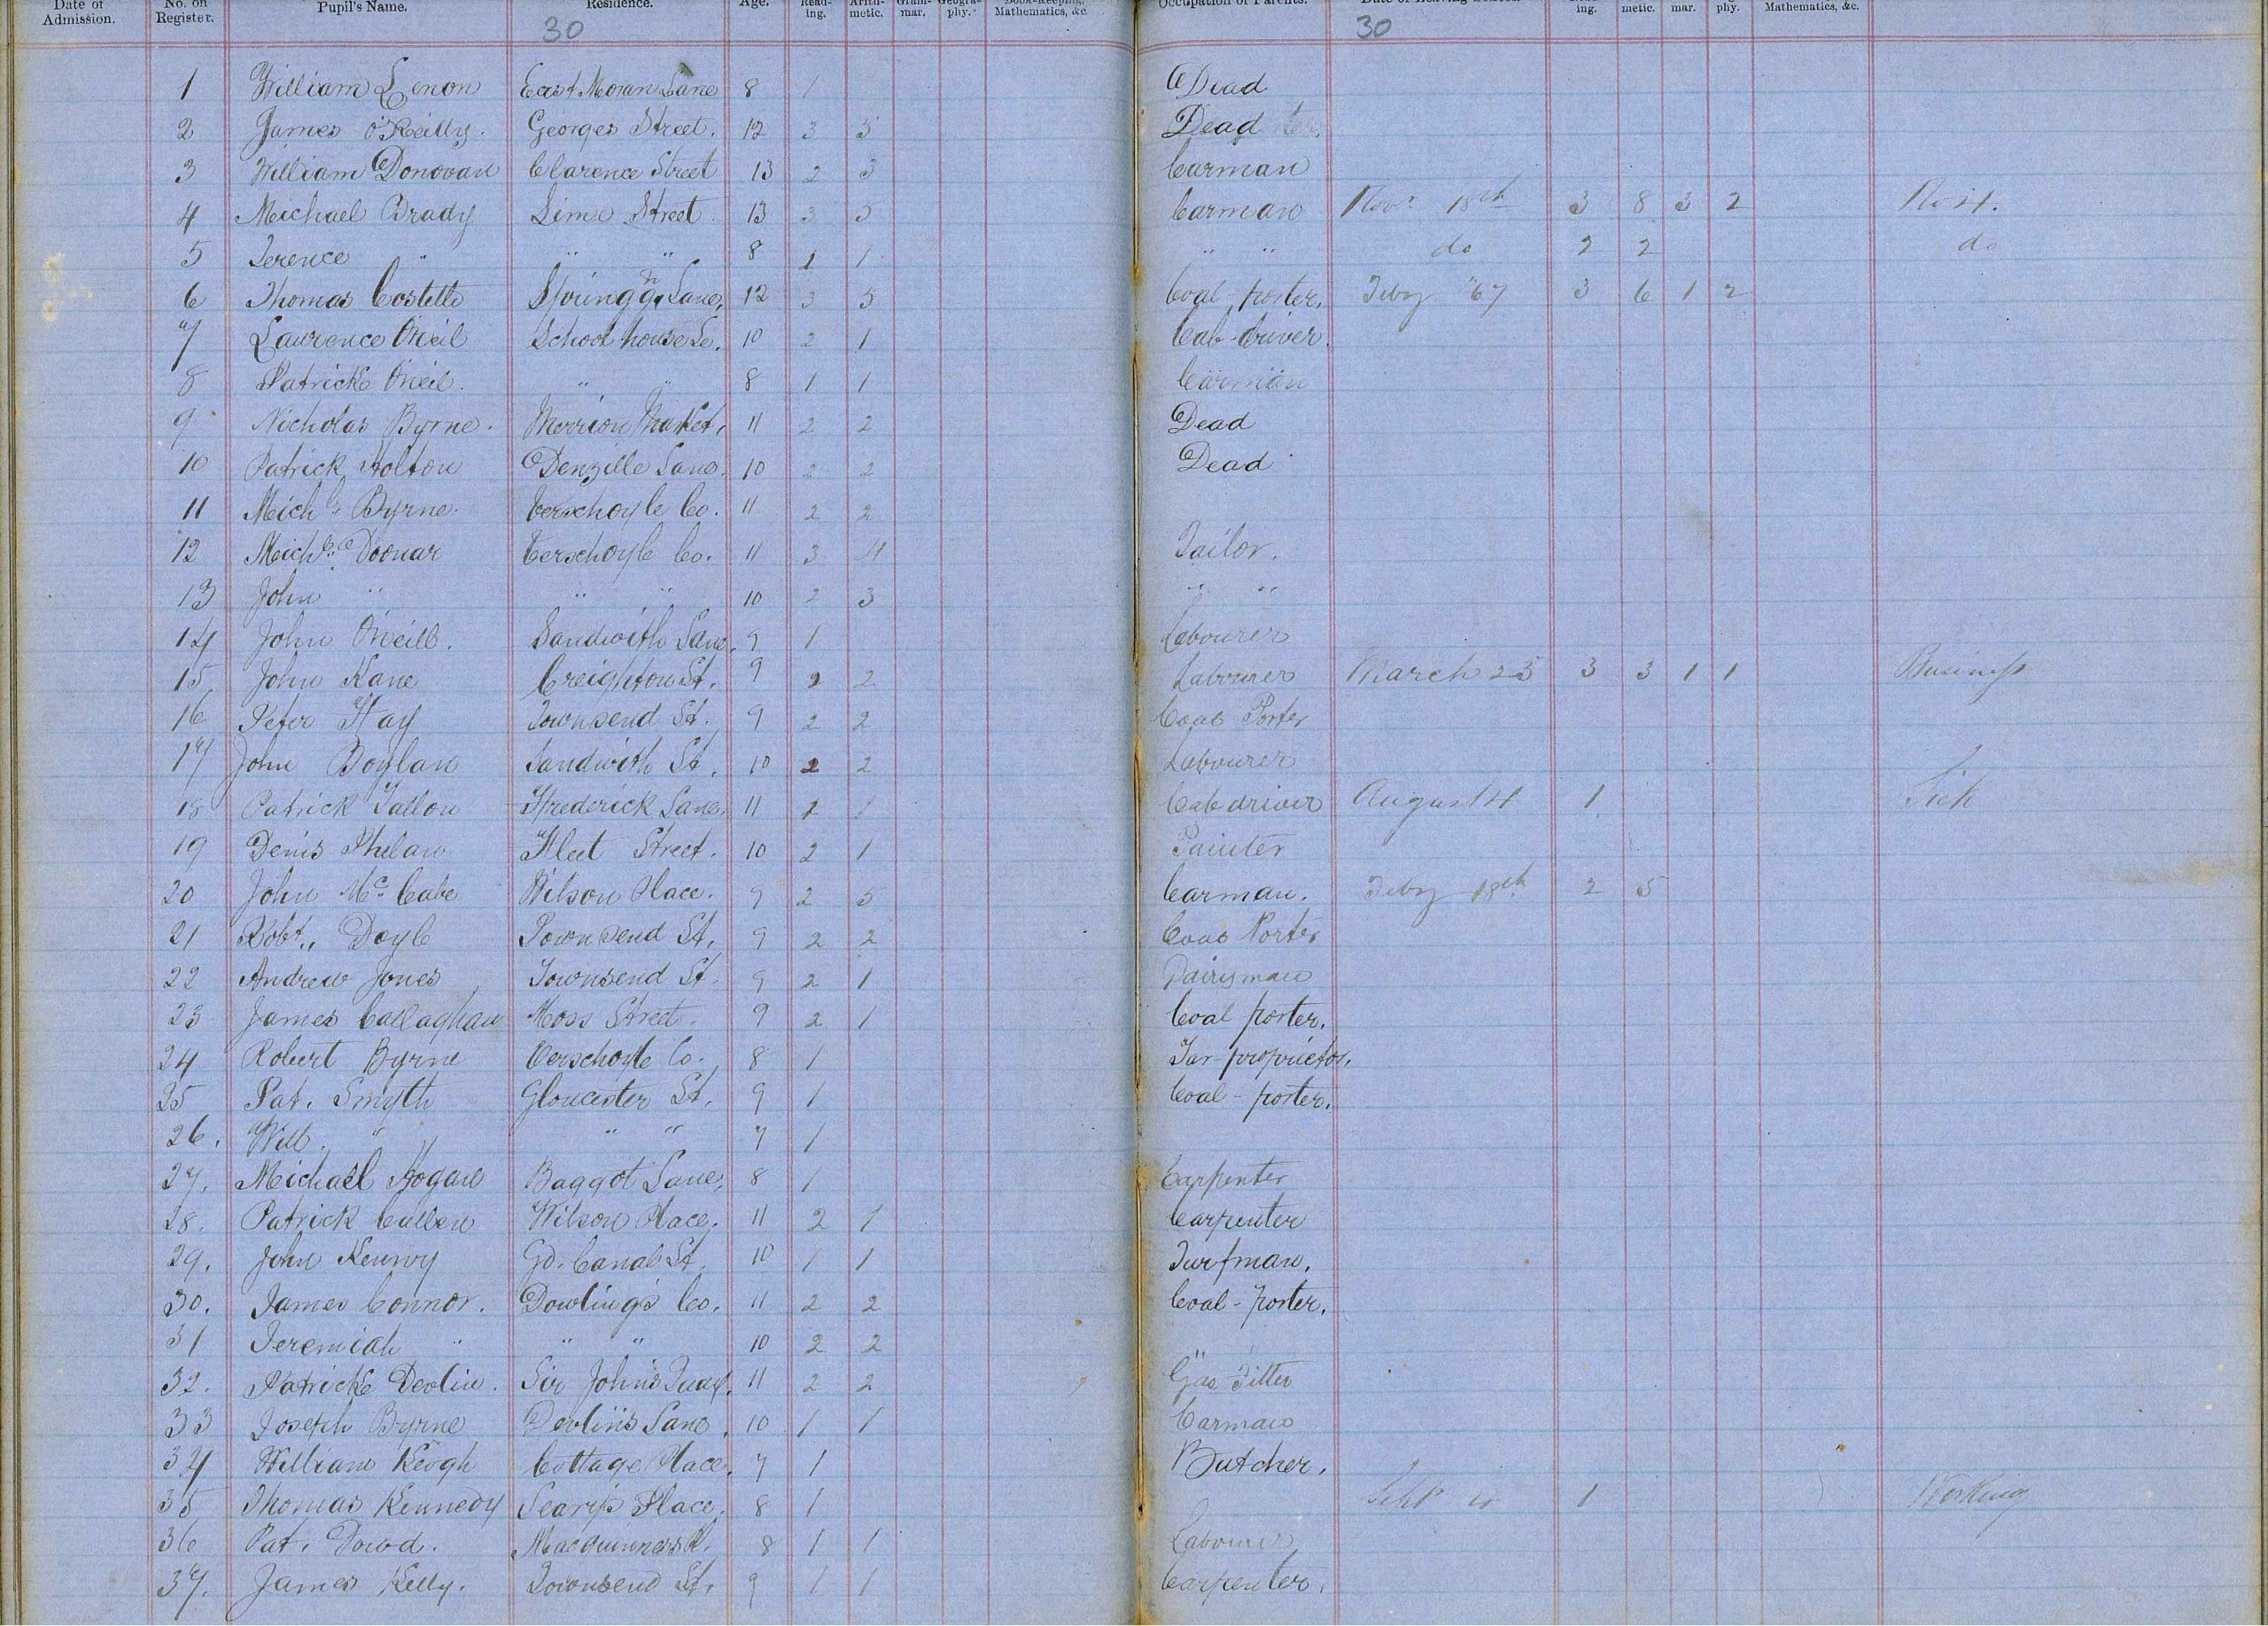 Date of Admission. No. on Register. Pupil's Name. Residence. Age. Read-ing. Arith-metic. Gram-mar. Geogra-phy. Book-keeping, Mathematics, &c Occupation of Parents. Date of Leaving School. ing. metic. mar. phy. Mathematics, &c.
30 30
1 William Lenon East Moran Lane 8 1 Dead
2 James O'Reilly. Georges Street. 12 3 5 Dead
3 William Donovan Clarence Street 13 2 3 Carman
4 Michael Brady Lime Street 13 3 5 Carman Novr. 18th 3 8 3 2
5 Terence " " " 8 2 1 " " do 2 2 do
6 Thomas Costello Spring gn Lane, 12 3 5 Coal porter, Feby "67 3 6 1 2
7 Lawrence O'Neil School house Le. 10 2 1 Cab-driver.
8 Patrick O'Neil. " " 8 1 1 Carman
9 Nicholas Byrne. Merrion Market, 11 2 2 Dead
10 Patrick Holton Denzille Lane. 10 2 2 Dead
11 Michl. Byrne. Verschoyle Co. 11 2 2
12 Michl. Doonar Verschoyle Co. 11 3 4 Tailor.
13 John " " " 10 2 3 " "
14 John O'Neill. Sandwith Lane. 9 1 Labourer
15 John Kane Creighton St. 9 2 2 Labourer March 25 3 3 1 1 Business
16 Peter Hay Townsend St. 9 2 2 Coal Porter
17 John Boylan Sandwith St. 10 2 2 Labourer
18 Patrick Fallon Frederick Lane. 11 2 1 Cab driver August 4 1 Sick
19 Denis Phelan Fleet Street. 10 2 1 Painter
20 John Mc. Cabe Wilson Place. 9 2 5 Carman. Feby 18th 2 5
21 Robt., Doyle Townsend St, 9 2 2 Coal Porter
22 Andrew Jones Townsend St. 9 2 1 Dairyman
23 James Callaghan Moss Street. 9 2 1 Coal porter.
24 Robert Byrne Verschoyle Co. 8 1 proprietor.
25 Pat. Smyth Gloucester St. 9 1 Coal-porter.
26. Will. " " " 7 1
27. Michael Hogan Baggot Lane, 8 1 Carpenter
28. Patrick Cullen Wilson Place. 11 2 1 Carpenter
29. John Kenny Gd. Canal St. 10 1 1 Turfman.
30. James Connor. Dowling's Co. 11 2 2 Coal-porter.
31 Jeremiah " " " 10 2 2 "
32. Patrick Devlin. Sir John's Quay. 11 2 2 Gas Fitter
33 Joseph Byrne Devlin's Lane. 10 1 1 Carman
34 William Keogh Cottage Place. 7 1 Butcher.
35 Thomas Kennedy Place. 8 1 Sept 1 Working
36 Pat. Dowd. 8 1 1 Labourer
37. James Kelly. Townsend St. 9 1 1 Carpenter.